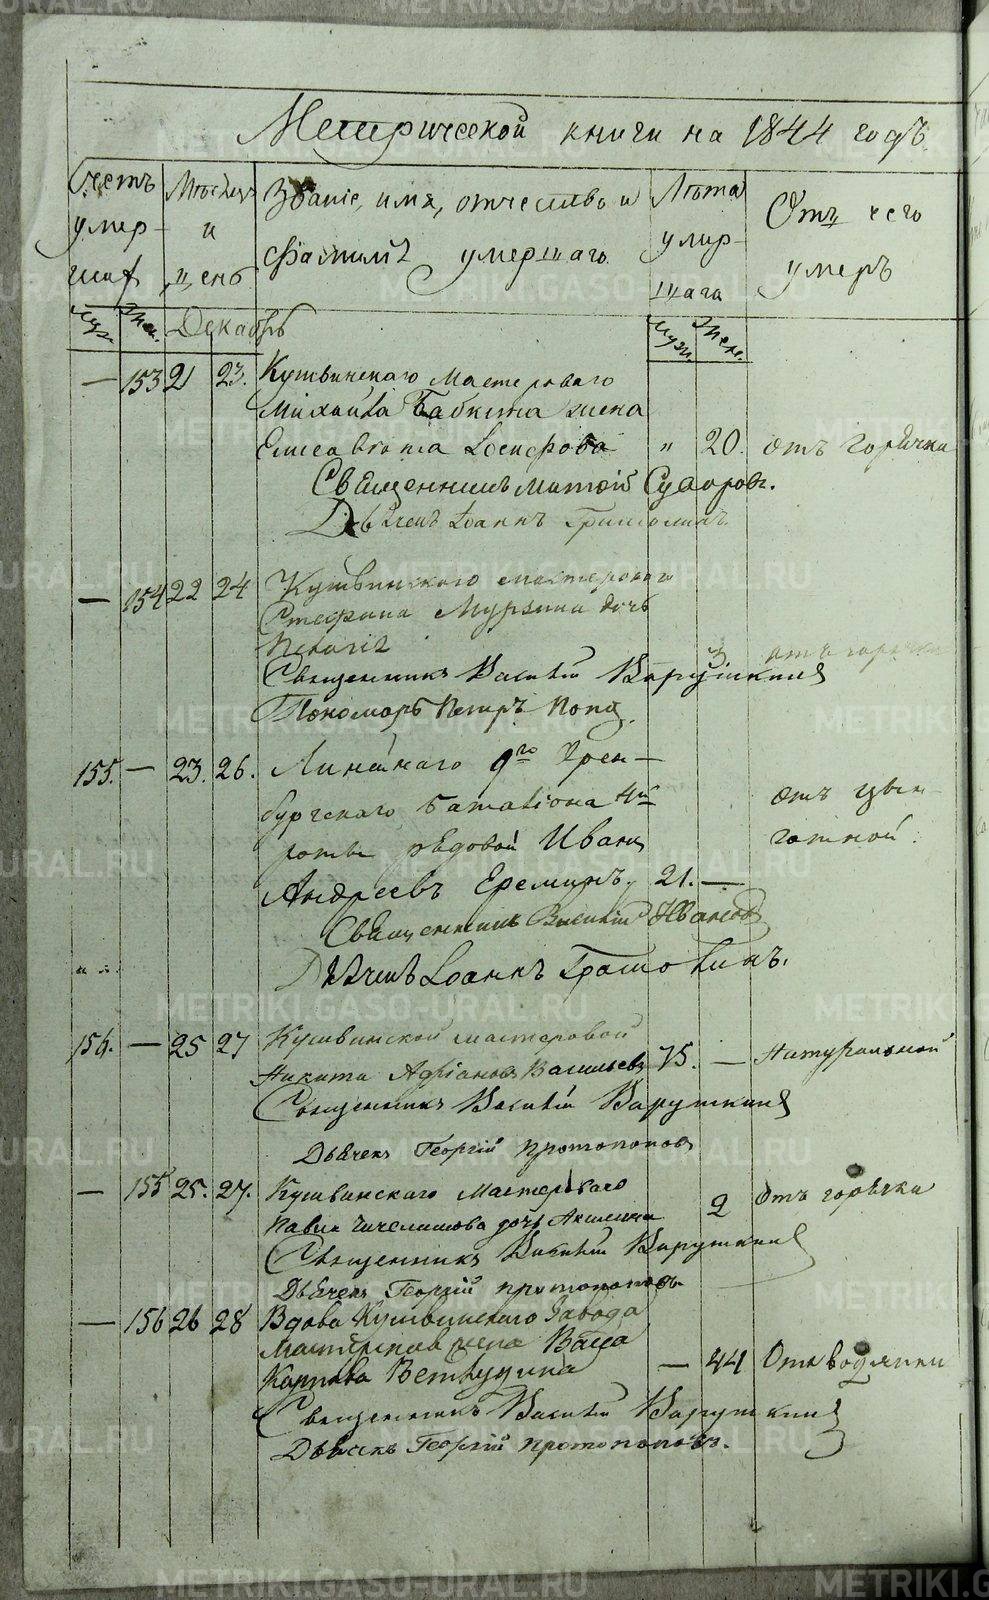 Метрической книги на 1844 годъ.
Счетъ умер- шихъ
Мѣсяцъ и день
Званіе, имя, отчество и фамилія умершаго.
Лѣта умер- шаго
Отъ чего умеръ
Муж. Жен. Декабрь Муж. Жен.
— 153 21 23. Кушвинскаго мастероваго
Михаила Бабкина жена
Елисавета Іосифова „ 20. отъ горячки
Священникъ Суворовъ.
Дьячекъ Іоаннъ
— 154 22 24 Кушвинскаго мастероваго
Стефана Мурзина дочь
3 отъ горячки
Священникъ Василій Варушкинъ
Пономарь Петръ Поповъ
155. — 23. 26. Линѣйнаго 9го Орен-
бургскаго баталіона 4й отъ цын-
роты рядовой Иванъ готной.
Андреевъ Ереминъ 21. —
Священникъ Василій Ивановъ
Дьячекъ Іоаннъ
156. — 25 27 Кушвинской мастеровой
Никита Адріановъ Васильевъ 75. — Натуральной
Священникъ Василій Варушкинъ
Дьячекъ Георгій Протопоповъ
— 155 25. 27. Кушвинскаго мастероваго
Павла дочь 2 Отъ горячки
Священникъ Василій Варушкинъ
Дьячекъ Георгій Протопоповъ
— 156 26 28 Вдова Кушвинскаго Завода
жена Васса
Карпова — 44 Отъ водянки
Священникъ Василій Варушкинъ
Дьячекъ Георгій Протопоповъ.
METRIKI.GASO-URAL.RU